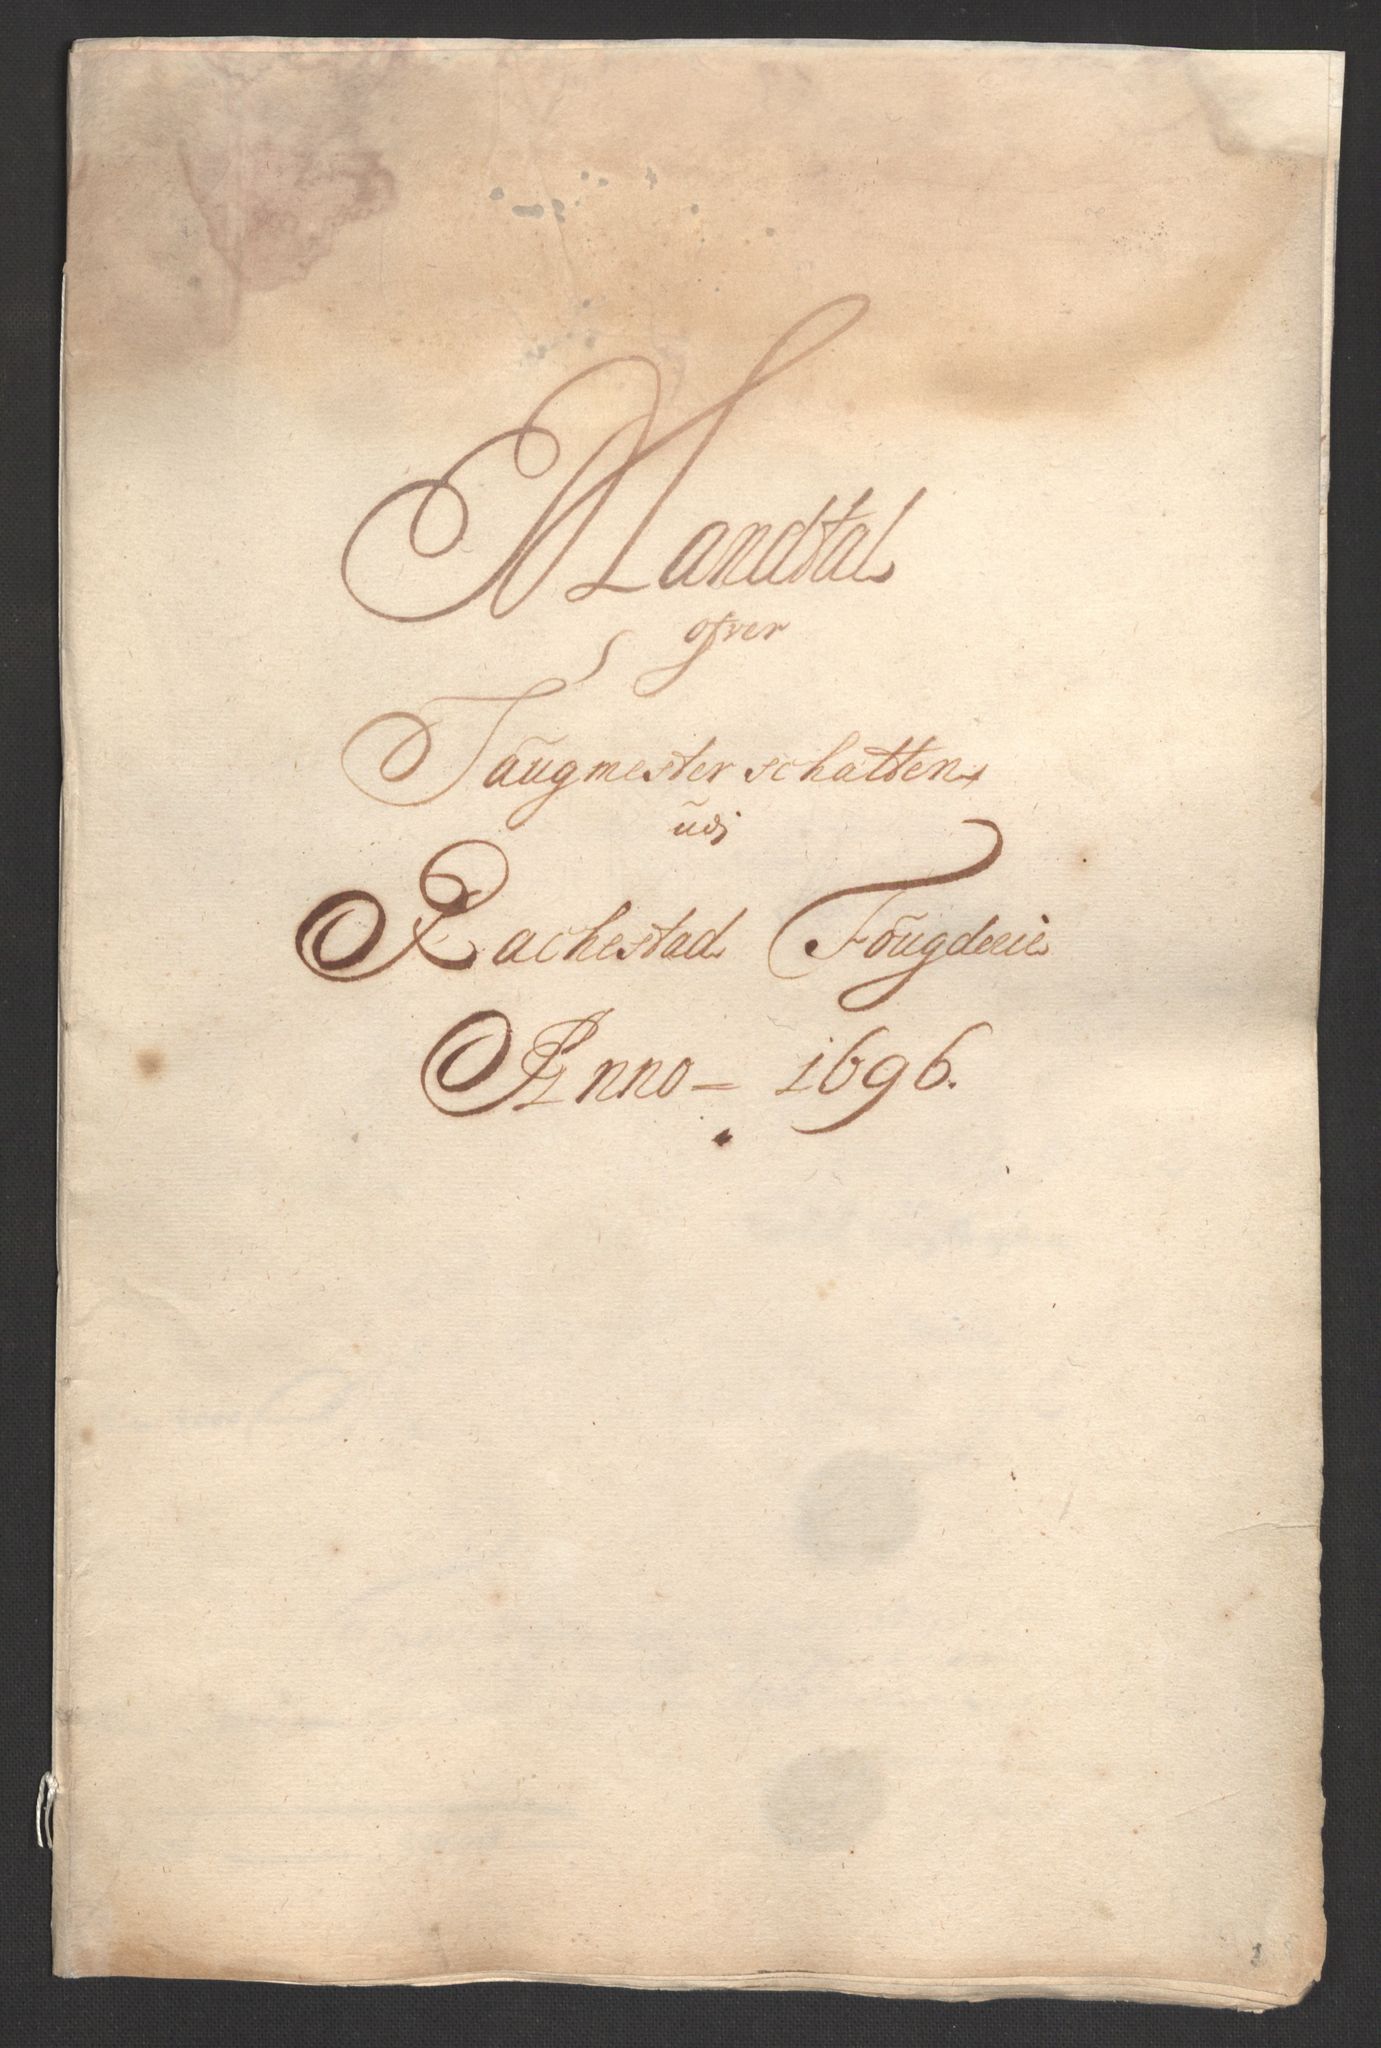 Mandtal
ofver
Taugmester schatten
udj
Rachestad Fougderie
Anno - 1696.